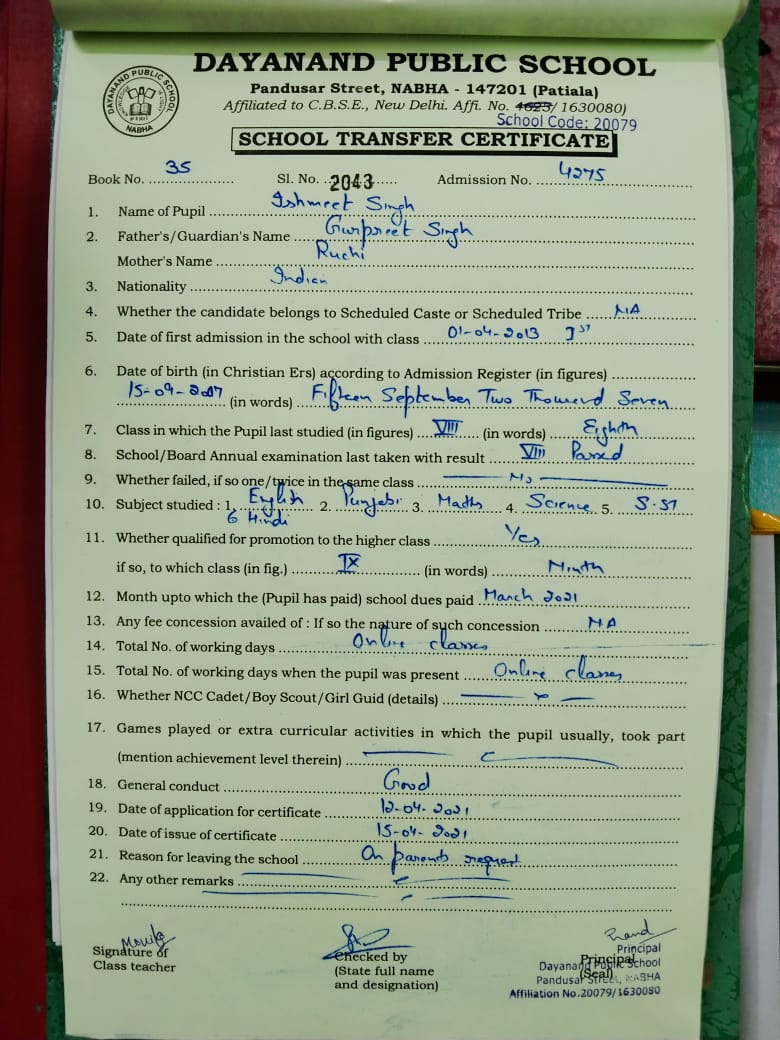 DAYANAND PUBLIC SCHOOL
Pandusar Street, NABHA - 147201 (Patiala)
Affiliated to C.B.S.E., New Delhi. Affi. No. 4623/ 1630080)
School Code: 20079
DAYANAND PUBLIC SCHOOL
NABHA
SCHOOL TRANSFER CERTIFICATE
Book No. 35 Sl. No. 2043 Admission No. 4275
1. Name of Pupil Ishmeet Singh
2. Father's/Guardian's Name Gurpreet Singh
Mother's Name Ruchi
3. Nationality Indian
4. Whether the candidate belongs to Scheduled Caste or Scheduled Tribe NA
5. Date of first admission in the school with class 01-04-2013 Ist
6. Date of birth (in Christian Ers) according to Admission Register (in figures)
15-09-2007 (in words) Fifteen September Two Thousand Seven
7. Class in which the Pupil last studied (in figures) VIII (in words) Eighth
8. School/Board Annual examination last taken with result VIII Passed
9. Whether failed, if so one/twice in the same class No
10. Subject studied : 1. English 2. Punjabi 3. Maths 4. Science 5. S.St
6 Hindi
11. Whether qualified for promotion to the higher class Yes
if so, to which class (in fig.) IX (in words) Ninth
12. Month upto which the (Pupil has paid) school dues paid March 2021
13. Any fee concession availed of : If so the nature of such concession NA
14. Total No. of working days Online classes
15. Total No. of working days when the pupil was present Online classes
16. Whether NCC Cadet/Boy Scout/Girl Guid (details)
17. Games played or extra curricular activities in which the pupil usually, took part
(mention achievement level therein)
18. General conduct Good
19. Date of application for certificate 12-04-2021
20. Date of issue of certificate 15-04-2021
21. Reason for leaving the school On parents request
22. Any other remarks
Signature of
Class teacher
Checked by
(State full name
and designation)
Principal
(Seal)
Principal
Dayanand Public School
Pandusar Street, NABHA
Affiliation No.20079/1630080